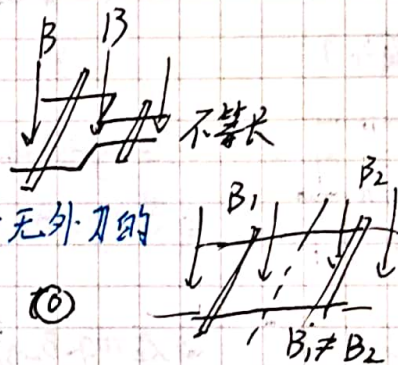 B B
不等长
无外力的
B₁ B₂
⓪
B₁≠B₂